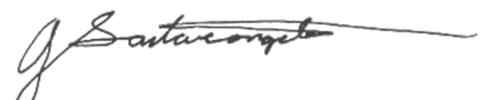 G Santarcangelo